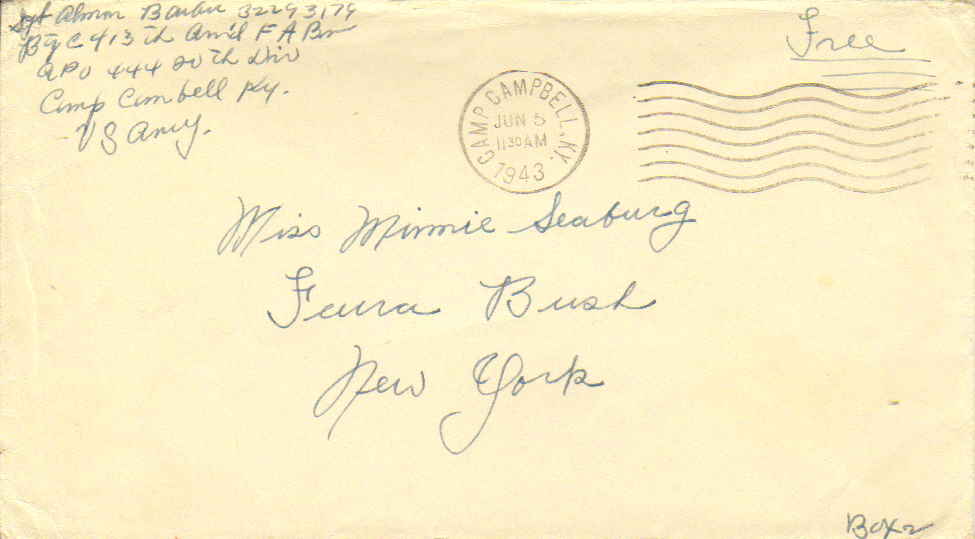 Sgt Almon Barber 32293179
Bty C 413th Arm'd F A Bn
APO 444 20th Div
Camp Cambell Ky.
US Army.
Free
CAMP CAMPBELL, KY.
JUN 5
1130 AM
1943
Miss Minnie Seaburg
Feura Bush
New York
Box 2